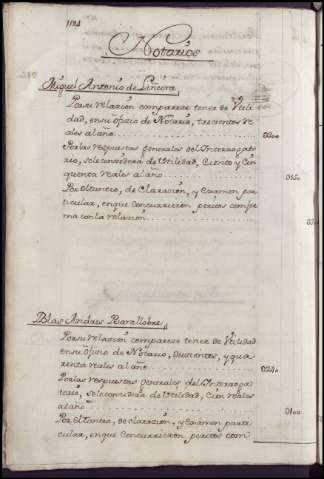 1124
Notarios
Miguel Antonio de Liñeira,
Por su relazion comparese tener de Vtili
dad, en su ofizio de Notario, trescientos rre
ales al año
0300
Por las respuestas generales del Interrogato
rio, sele considera de Vtilidad, Ciento y Cin
quenta reales al año
015o
Por el tanteo, de Claracion, y Examen par
ticular, en que Concurrieron peritos confor
ma con la relazion
Blas Andres Barallobre,
Por su relazion comparese tener de Vtilidad
en su ofizio de Notario, Duscientos, y qua
renta reales al año
0240
Por las respuestas Generales del Interroga
torio, sele considera de Vtilidad, Cien reales
al año
0100
Por el tanteo, declarazion, y Examen parti
cular, en que Concurrieron peritos com